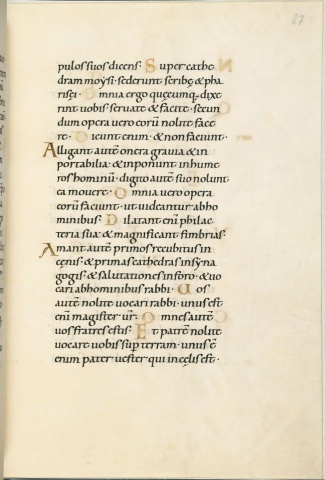 27
pulos suos dicens· Super cathe
dram moysi· sederunt scribę & pha
risęi· Omnia ergo quęcumq; dixe
rint uobis· seruate & facite· secun
dum opera uero eorũ nolite face
re· Dicunt enim· & non faciunt·
Alligant autẽ onera grauia & in
portabilia· & inponunt in hume
ros hominũ· digito autẽ suo nolunt
ea mouere· Omnia uero opera
eorũ faciunt· ut uideantur ab ho
minibus· Dilatant eñi philac
teria sua· & magnificant fimbrias·
Amant autẽ primos recubitus in
cęnis· & primas cathedras in syna
gogis· & salutationes in foro· & uo
cari ab hominibus rabbi· Uos
autẽ nolite uocari rabbi· unus est
eñi magister ur̃· Omnes autẽ
uos fratres estis· Et patrẽ nolite
uocare uobis sup terram· unus ẽ
enim pater uester qui in cęlis est·